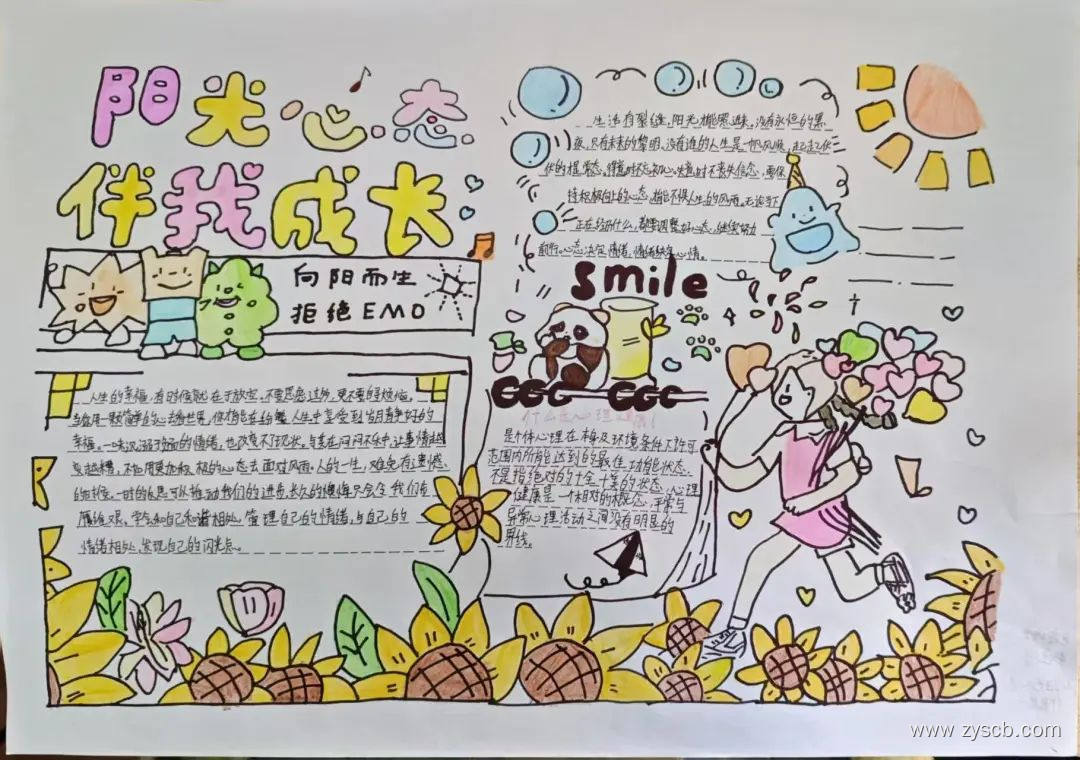 阳光心态
伴我成长
向阳而生
拒绝EMO
生活有裂缝,阳光能照进来,没有永恒的黑
夜,只有未来的黎明,没有谁的人生是一帆风顺,起起伏
伏的是常态,得意时不忘初心,失意时不丧失信念,要保
持积极向上的心态,才能不惧人生的风雨。无论
正在经历什么,都要调整好心态,继续努力
前行。心态决定情绪,情绪决定心情。
smile
人生的幸福,有时候就在于放空,不要思虑过多,更不要自寻烦恼。
简单的心去拥抱世界,你才能在纷繁人生中享受到岁月静好的
幸福。一味沉溺于负面的情绪,也改变不了现状,与其在闷闷不乐中,让事情越
变越糟,不如用更加积极的心态去面对风雨,人的一生,难免有遗憾
的时候。一时的反思可以推动我们的进步,长久的懊悔只会令我们身
陷维艰。学会和自己和谐相处,管理自己的情绪,与自己的
情绪相处,发现自己的闪光点。
什么是心理健康
是个体心理在本身及环境条件下许可
范围内所能达到的最佳功能状态,
不是指绝对的十全十美的状态,心理
健康是一个相对的概念,平常与
异常心理活动之间没有明显的
界线。
www.zyscb.com